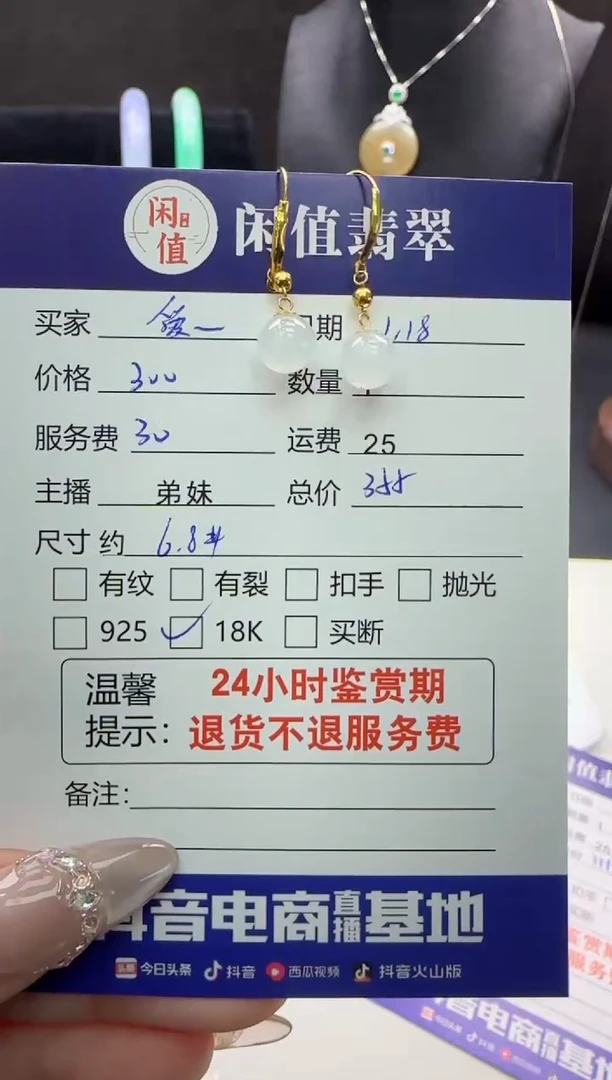 闲值
闲值翡翠
买家 日期 1.18
价格 300 数量
服务费 30 运费 25
主播 弟妹 总价 355
尺寸 约 6.8#
有纹 有裂 扣手 抛光
925 18K 买断
温馨提示: 24小时鉴赏期
退货不退服务费
备注:
抖音电商直播基地
头条 今日头条 抖音 西瓜视频 抖音火山版